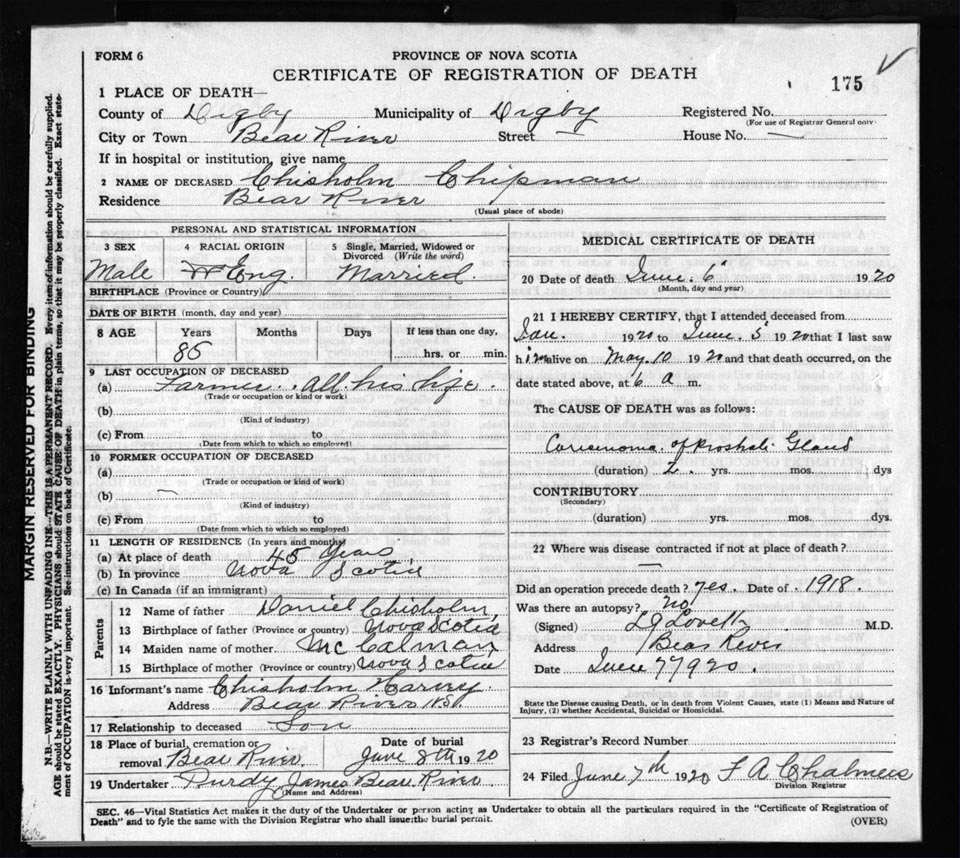 FORM 6
PROVINCE OF NOVA SCOTIA
CERTIFICATE OF REGISTRATION OF DEATH
175
1 PLACE OF DEATH—
County of Digby Municipality of Digby Registered No.
(For use of Registrar General only)
City or Town Bear River Street — House No. —
If in hospital or institution, give name
2 NAME OF DECEASED Chisholm Chipman
Residence Bear River
(Usual place of abode)
PERSONAL AND STATISTICAL INFORMATION
3 SEX 4 RACIAL ORIGIN 5 Single, Married, Widowed or Divorced (Write the word)
Male Eng. Married
BIRTHPLACE (Province or Country)
DATE OF BIRTH (month, day and year)
8 AGE Years Months Days If less than one day,
86 hrs. or min.
9 LAST OCCUPATION OF DECEASED
(a) Farmer. All his life.
(Trade or occupation or kind or work)
(b)
(Kind of industry)
(c) From to
(Date from which to which so employed)
10 FORMER OCCUPATION OF DECEASED
(a)
(Trade or occupation or kind of work)
(b) —
(Kind of industry)
(c) From to
(Date from which to which so employed)
11 LENGTH OF RESIDENCE (In years and months)
(a) At place of death 45 Years
(b) In province Nova Scotia
(c) In Canada (if an immigrant)
Parents
12 Name of father Daniel Chisholm
13 Birthplace of father (Province or country) Nova Scotia
14 Maiden name of mother McCalman
15 Birthplace of mother (Province or country) Nova Scotia
16 Informant's name Chisholm Harvey
Address Bear River N.S.
17 Relationship to deceased Son
18 Place of burial, cremation or removal Bear River Date of burial June 8th 1920
19 Undertaker Purdy James Bear River
(Name and Address)
MEDICAL CERTIFICATE OF DEATH
20 Date of death June 6 1920
(Month, day and year)
21 I HEREBY CERTIFY, that I attended deceased from
Jan. 1920 to June 5 1920 that I last saw
him alive on May 10 1920 and that death occurred, on the
date stated above, at 6 a m.
The CAUSE OF DEATH was as follows:
Carcenoma of Prostati Gland
(duration) 2 yrs. mos. dys
CONTRIBUTORY
(Secondary)
(duration) yrs. mos. dys.
22 Where was disease contracted if not at place of death?
—
Did an operation precede death? yes. Date of 1918.
Was there an autopsy? No
(Signed) L J Lovett M.D.
Address Bear River
Date June 7 1920
State the Disease causing Death, or in death from Violent Causes, state (1) Means and Nature of Injury, (2) whether Accidental, Suicidal or Homicidal.
23 Registrar's Record Number
24 Filed June 7th 1920 F A Chalmers
Division Registrar
SEC. 46—Vital Statistics Act makes it the duty of the Undertaker or person acting as Undertaker to obtain all the particulars required in the "Certificate of Registration of
Death" and to fyle the same with the Division Registrar who shall issue the burial permit.
(OVER)
MARGIN RESERVED FOR BINDING
N.B.—WRITE PLAINLY WITH UNFADING INK—THIS IS A PERMANENT RECORD. Every item of information should be carefully supplied.
AGE should be stated EXACTLY. PHYSICIANS should STATE CAUSE OF DEATH in plain terms, so that it may be properly classified. Exact state-
ment of OCCUPATION is very important. See instructions on back of Certificate.